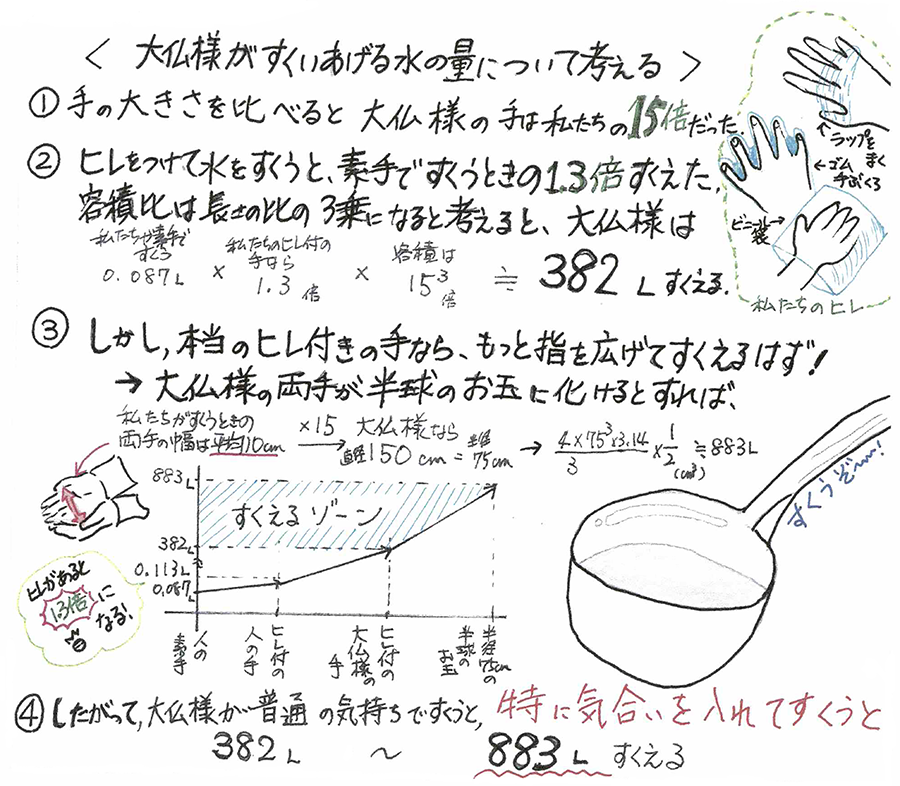 < 大仏様がすくいあげる水の量について考える >
① 手の大きさを比べると 大仏様の手は私たちの15倍だった。
② ヒレをつけて水をすくうと、素手ですくうときの1.3倍すえた。
容積比は長さの比の3乗になると考えると、大仏様は
私たちが素手ですくう
0.087L
×
私たちのヒレ付の手なら
1.3倍
×
容積は
15³倍
≒ 382 L すくえる.
ラップをまく
ゴム手ぶくろ
ビニール袋
私たちのヒレ
③ しかし, 本当のヒレ付きの手なら、もっと指を広げてすくえるはず!
→ 大仏様の両手が半球のお玉に化けるとすれば、
私たちがすくうときの
両手の幅は平均10cm
×15
→
大仏様なら
直径150cm = 半径75cm
→ 4×75³×3.14/3 × 1/2 (cm³) ≒ 883L
883L
すくえるゾーン
382L
0.113L
0.087L
人の素手
ヒレ付の人の手
ヒレ付の大仏様の手
半径75cmの半球のお玉
ヒレがあると
1.3倍に
なる!
すくうぞ〜〜!
④ したがって, 大仏様が普通の気持ちですくうと, 特に気合いを入れてすくうと
382L 〜 883L すくえる